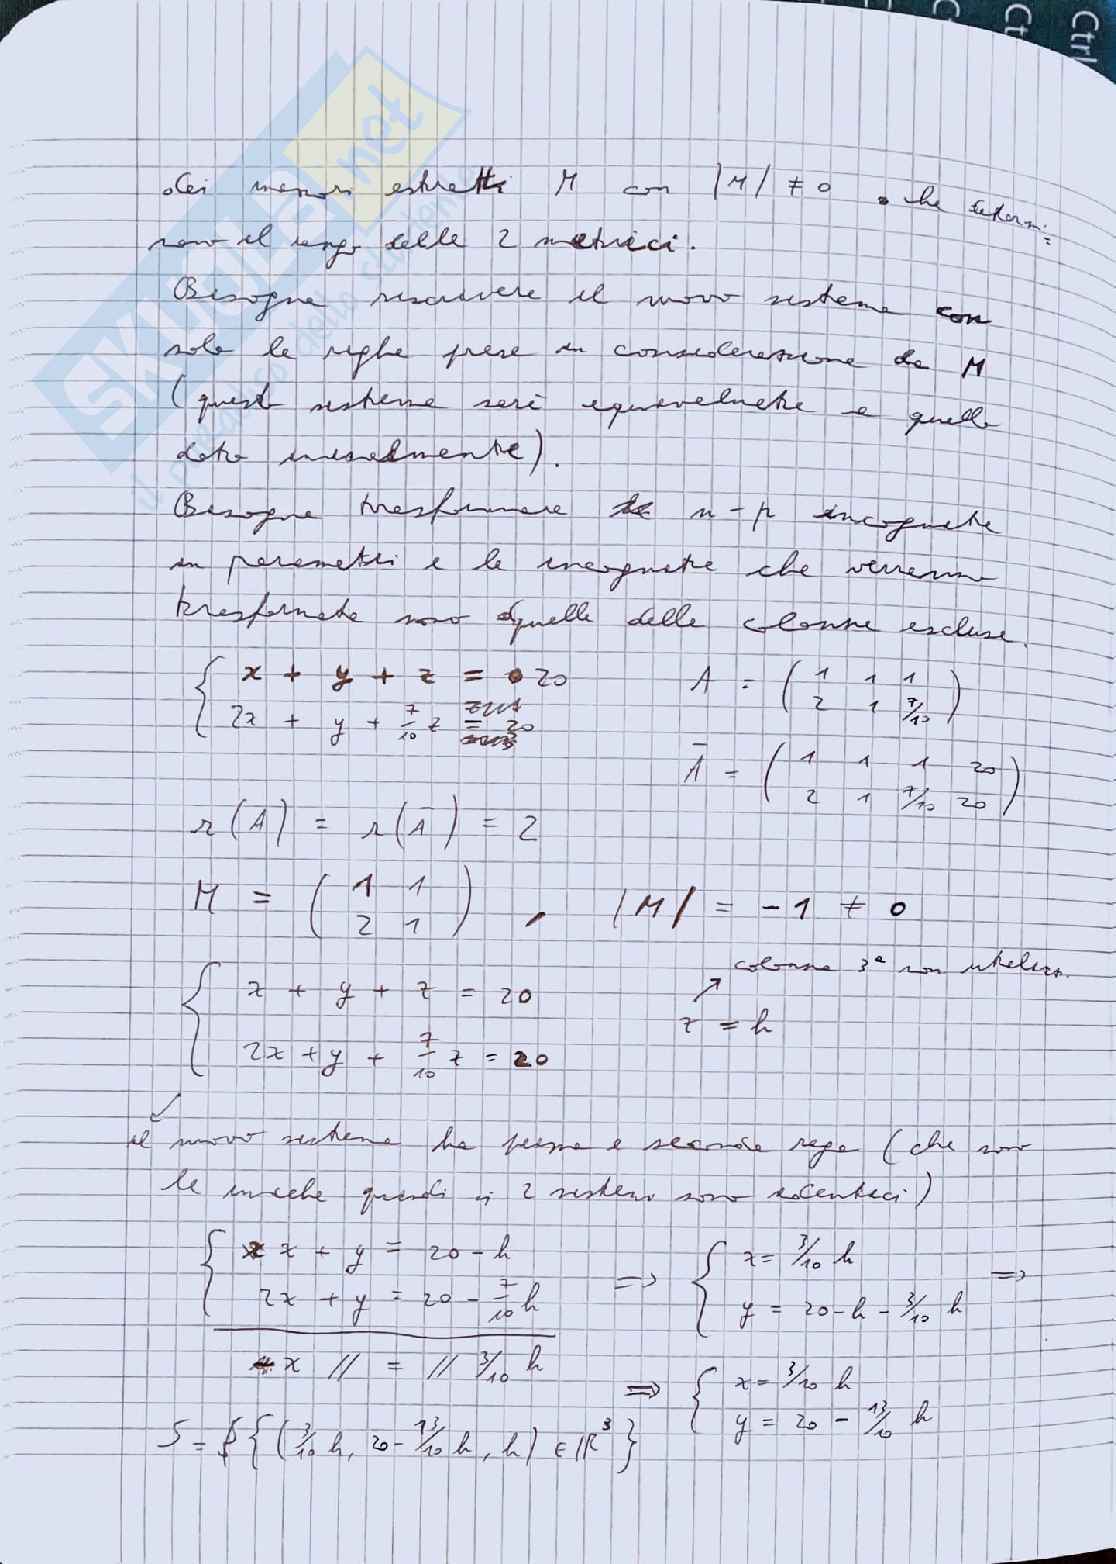 Ctrl
SKUOLA.net
dei minori estratti M con |M| ≠ 0 che determi=
nano il rango delle 2 matrici.
Bisogna riscrivere il nuovo sistema con
solo le righe prese in considerazione da M
(questo sistema sarà equivalente a quello
dato inizialmente).
Bisogna trasformare n-p incognite
in parametri e le incognite che verranno
trasformate sono quelle delle colonne escluse.
{ x + y + z = 20
2x + y + 7/10 z = 20
A = ( 1 1 1
2 1 7/10 )
Ā = ( 1 1 1 20
2 1 7/10 20 )
r(A) = r(Ā) = 2
M = ( 1 1
2 1 ) , |M| = -1 ≠ 0
{ x + y + z = 20
2x + y + 7/10 z = 20
colonna 3ª non utilizz.
z = h
il nuovo sistema ha prima e seconda riga (che sono
le uniche quindi i 2 sistemi sono identici)
{ x + y = 20 - h
2x + y = 20 - 7/10 h
x // = // 3/10 h
=> { x = 3/10 h
y = 20 - h - 3/10 h =>
=> { x = 3/10 h
y = 20 - 13/10 h
S = { ( 3/10 h, 20 - 13/10 h, h ) ∈ ℝ³ }